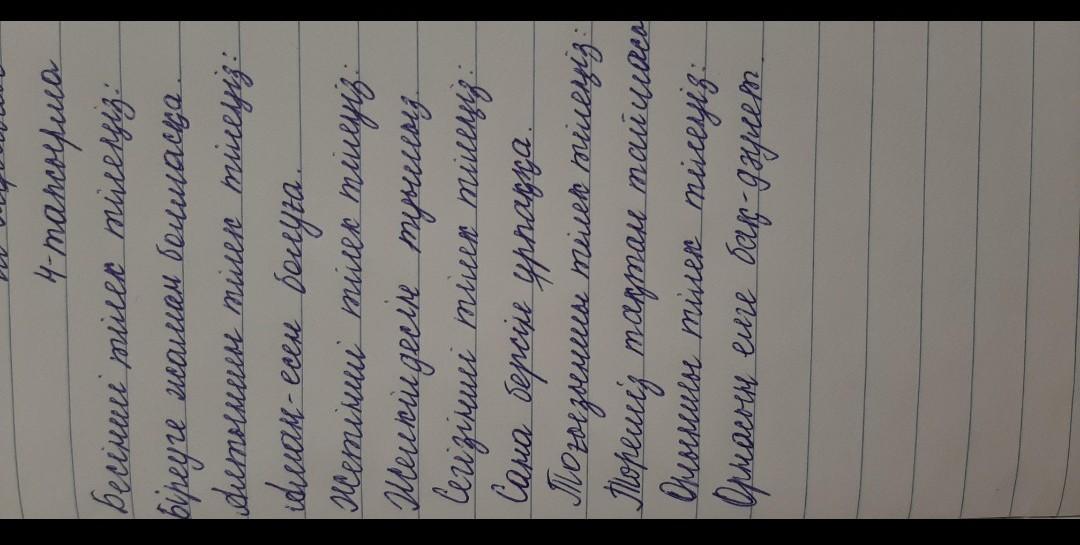 4-тапсырма
Бесінші тілек тілеңіз:
Біреуге жаман болмасқа.
Алтыншы тілек тілеңіз:
Аман-есен болуға.
Жетінші тілек тілеңіз:
Желкілдесін туымыз.
Сегізінші тілек тілеңіз:
Сана берсін ұрпаққа.
Тоғызыншы тілек тілеңіз:
Төреміз тақтан таймасы
Оныншы тілек тілеңіз:
Орнасын елге бақ-дәулет.